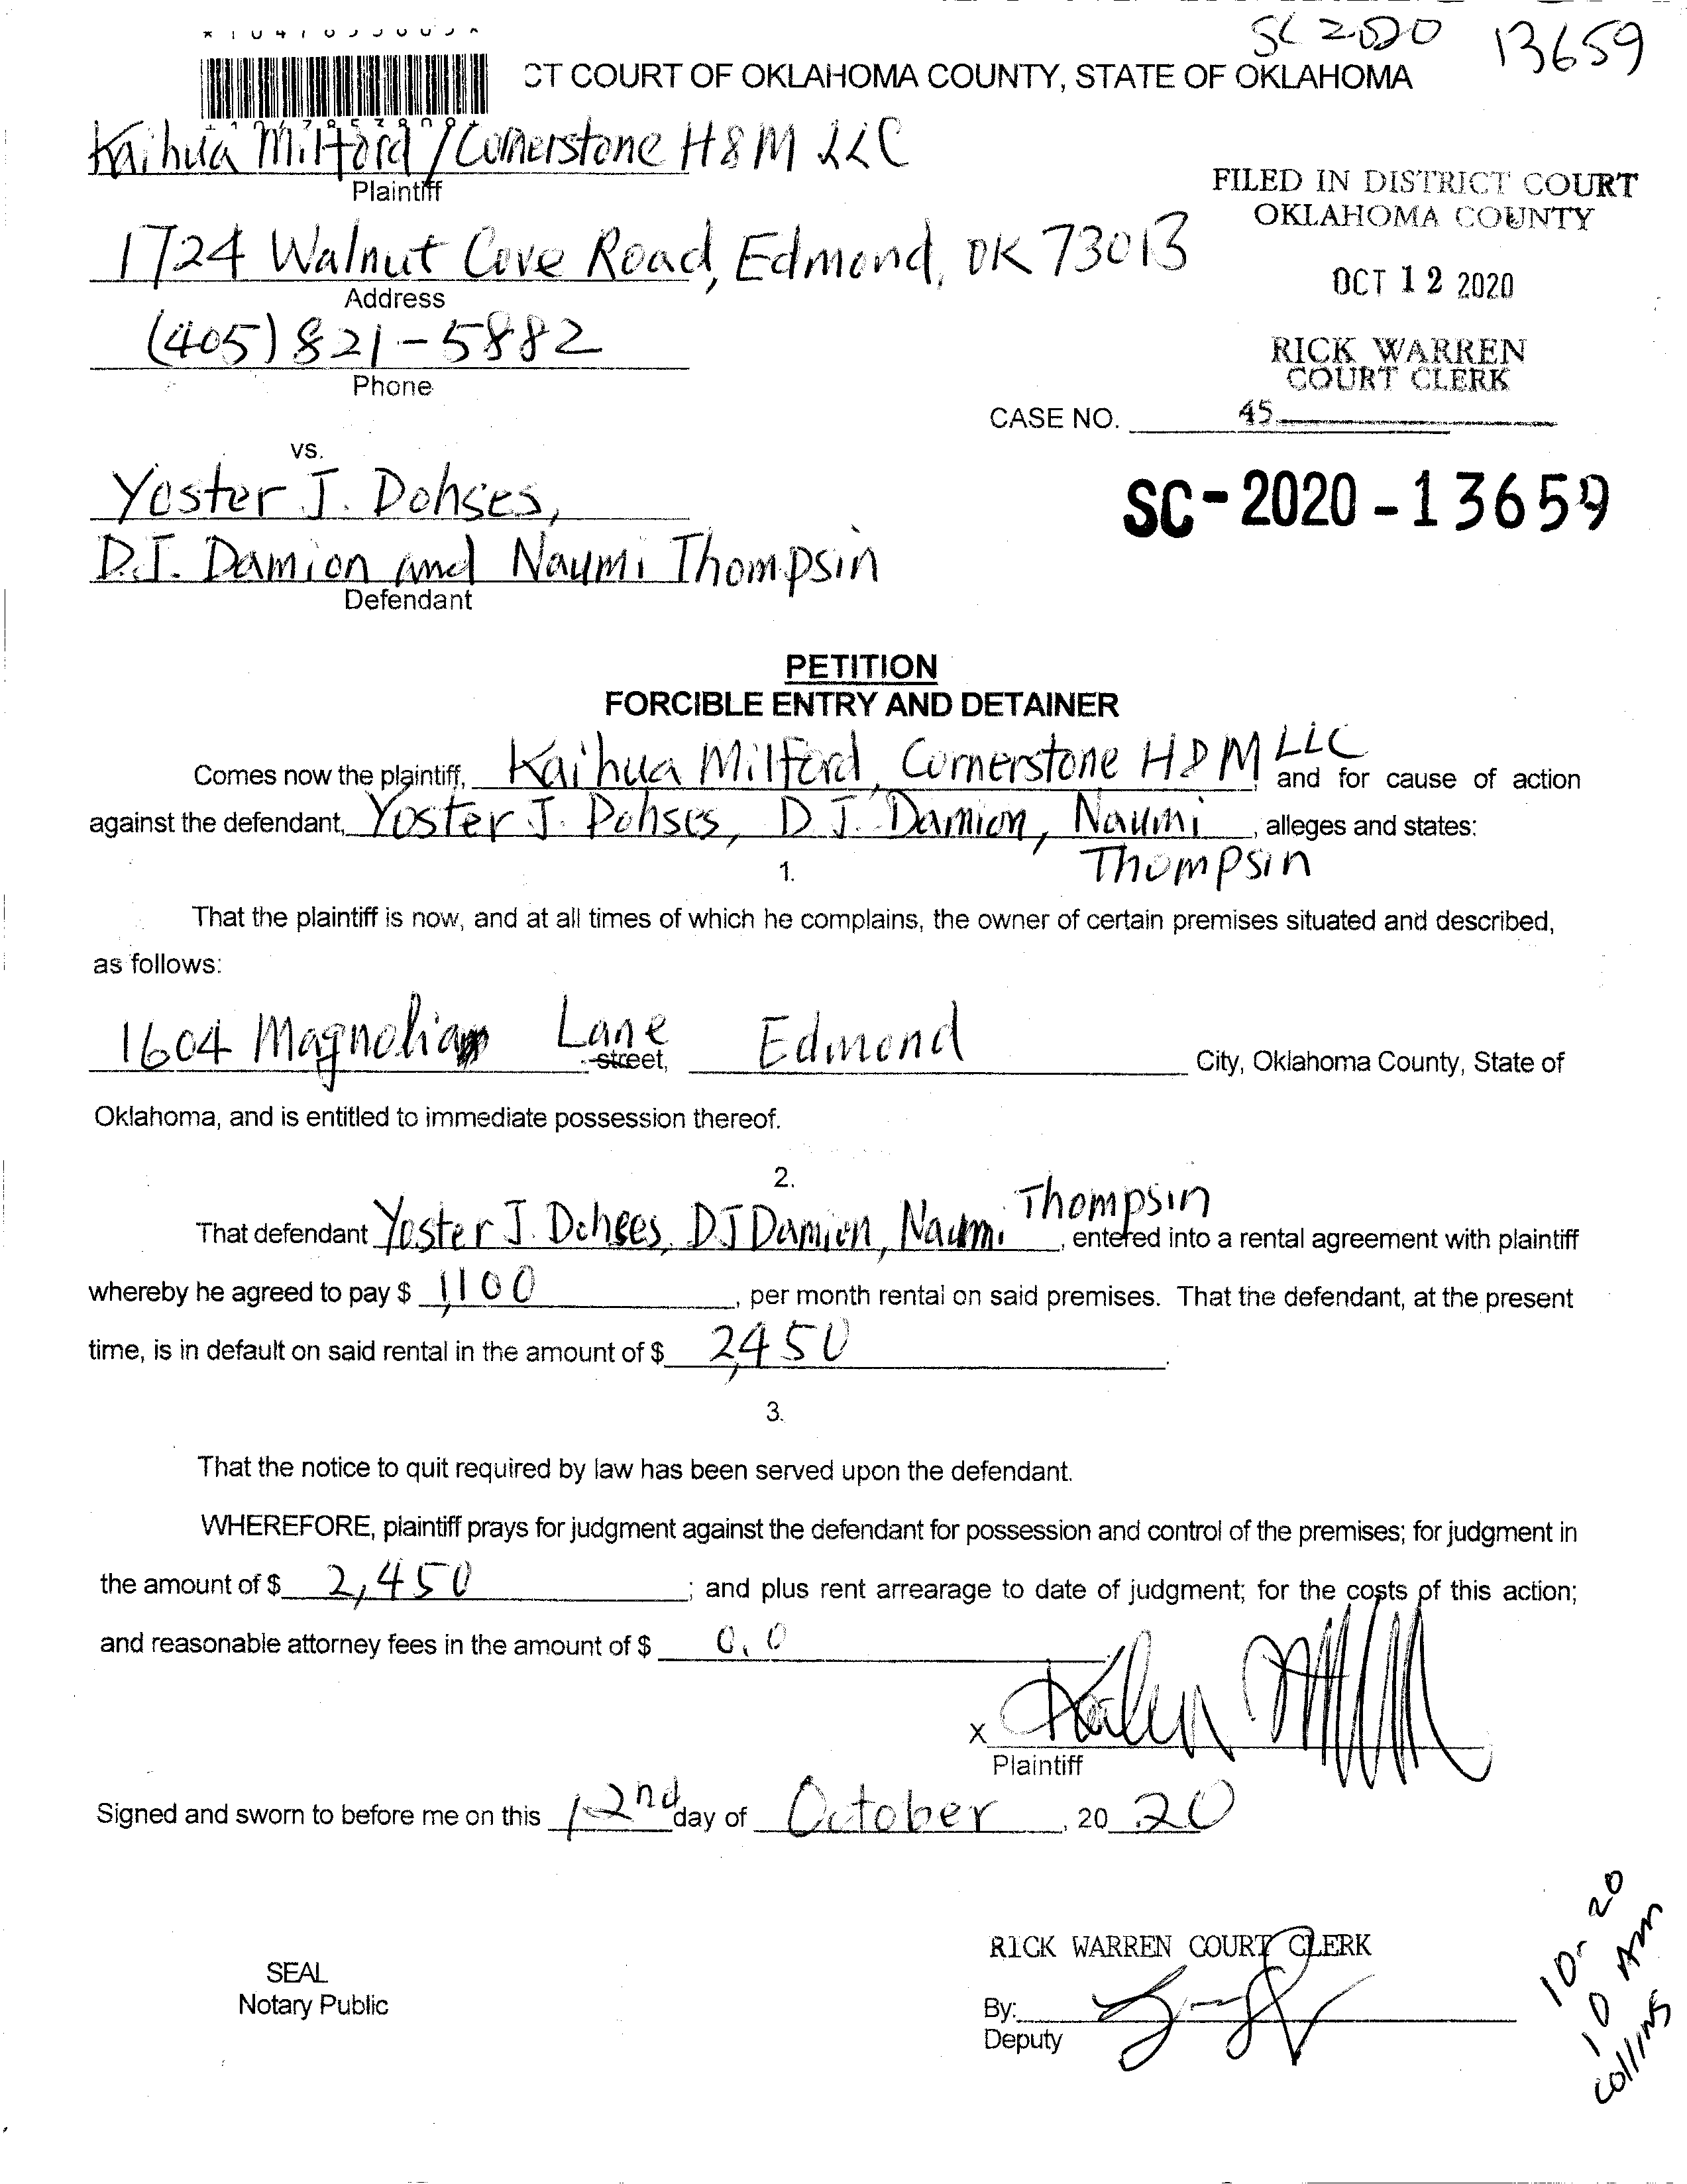 SC 2020 13659
CT COURT OF OKLAHOMA COUNTY, STATE OF OKLAHOMA
Kaihua Milford / Cornerstone H&M LLC
Plaintiff
FILED IN DISTRICT COURT
OKLAHOMA COUNTY
1724 Walnut Cove Road, Edmond, OK 73013
Address
OCT 12 2020
(405) 821-5882
Phone
RICK WARREN
COURT CLERK
CASE NO. 45
vs.
Yoster J. Dohses,
SC-2020-13659
D.J. Damion and Naumi Thompsin
Defendant
PETITION
FORCIBLE ENTRY AND DETAINER
Comes now the plaintiff, Kaihua Milford, Cornerstone H&M LLC, and for cause of action
against the defendant, Yoster J. Dohses, D J. Damion, Naumi Thompsin, alleges and states:
1.
That the plaintiff is now, and at all times of which he complains, the owner of certain premises situated and described,
as follows:
1604 Magnolia Lane street, Edmond City, Oklahoma County, State of
Oklahoma, and is entitled to immediate possession thereof.
2.
That defendant Yoster J. Dohses, DJ Damion, Naumi Thompsin, entered into a rental agreement with plaintiff
whereby he agreed to pay $ 1,100, per month rental on said premises. That the defendant, at the present
time, is in default on said rental in the amount of $ 2,450.
3.
That the notice to quit required by law has been served upon the defendant.
WHEREFORE, plaintiff prays for judgment against the defendant for possession and control of the premises; for judgment in
the amount of $ 2,450; and plus rent arrearage to date of judgment; for the costs of this action;
and reasonable attorney fees in the amount of $ 0.0.
X
Plaintiff
Signed and sworn to before me on this 12nd day of October, 20 20
RICK WARREN COURT CLERK
SEAL
Notary Public
By:
Deputy
10-20
10 AM
Collins